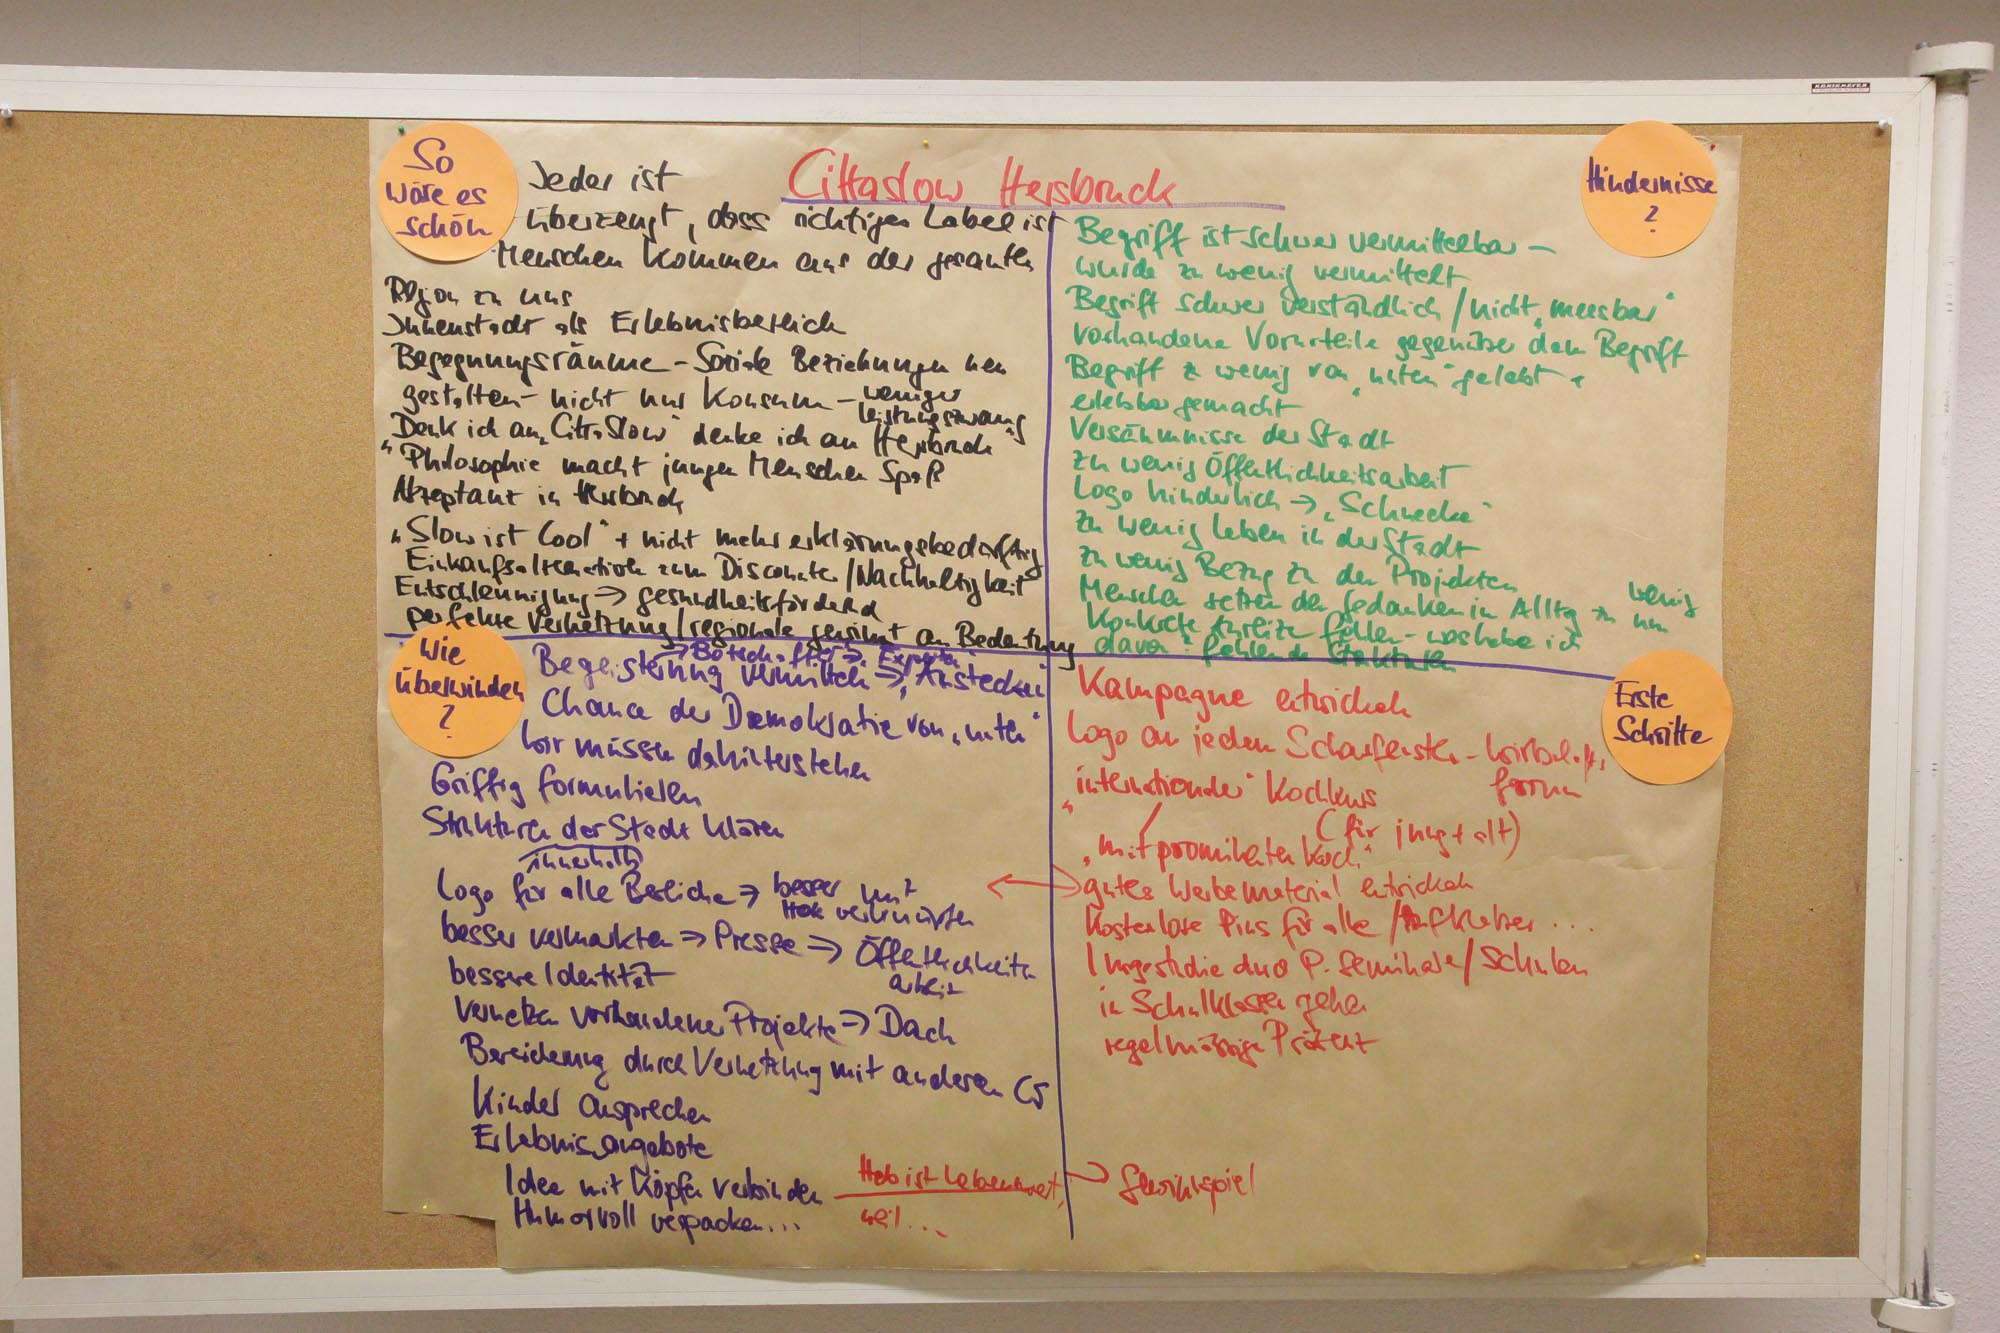 Cittaslow Hersbruck
So
wäre es
schön
Jeder ist
überzeugt, dass richtiges Label ist
Menschen kommen aus der gesamten
Region zu uns
Innenstadt als Erlebnisbereich
Begegnungsräume - Soziale Beziehungen neu
gestalten - nicht nur Konsum - weniger
Leistungszwang
Denk ich an "CittaSlow" denke ich an Hersbruck"
"Philosophie macht jungen Menschen Spaß
Akzeptanz in Hersbruck
"Slow ist Cool" + nicht mehr erklärungsbedürftig
Einkaufsalternative zum Discounter/Nachhaltigkeit
Entschleunigung → gesundheitsfördernd
perfekte Vernetzung/regionale gewinnt an Bedeutung
Hindernisse
?
Begriff ist schwer vermittelbar -
wurde zu wenig vermittelt
Begriff schwer verständlich/nicht "messbar"
vorhandene Vorurteile gegenüber dem Begriff
Begriff zu wenig von "unten" gelebt +
erlebbar gemacht
Versäumnisse der Stadt
zu wenig Öffentlichkeitsarbeit
Logo hinderlich → "Schnecke"
zu wenig Leben in der Stadt
zu wenig Bezug zu den Projekten
Menschen setzen den Gedanken in Alltag zu wenig um
Konkrete Anreize fehlen - was habe ich
davon? fehlende Strukturen
Wie
überwinden
?
→ Botschafter → Experten
Begeisterung vermitteln → "Anstecken"
Chance der Demokratie von "unten"
Wir müssen dahinterstehen
Griffig formulieren
Strukturen der Stadt klären
innerhalb
Logo für alle Bereiche → besser mit
HEB verknüpfen
besser vermarkten ⇒ Presse ⇒ Öffentlichkeits
arbeit
bessere Identität
Vernetzen vorhandener Projekte ⇒ Dach
Bereicherung durch Vernetzung mit anderen CS
Kinder ansprechen
Erlebnisangebote
Idee mit Köpfen verbinden
Humorvoll verpacken...
Heb ist lebenswert,
weil...
→ Gewinnspiel
Erste
Schritte
Kampagne entwickeln
Logo an jedem Schaufenster - Wirtschafts
forum
"internationaler" Kochkurs
(für jung + alt)
"mit prominenten Koch"
gutes Werbematerial entwickeln
Kostenlose Pins für alle/Aufkleber...
Imagestudie duo P-Seminare/Schulen
in Schulklassen gehen
regelmässige Präsenz